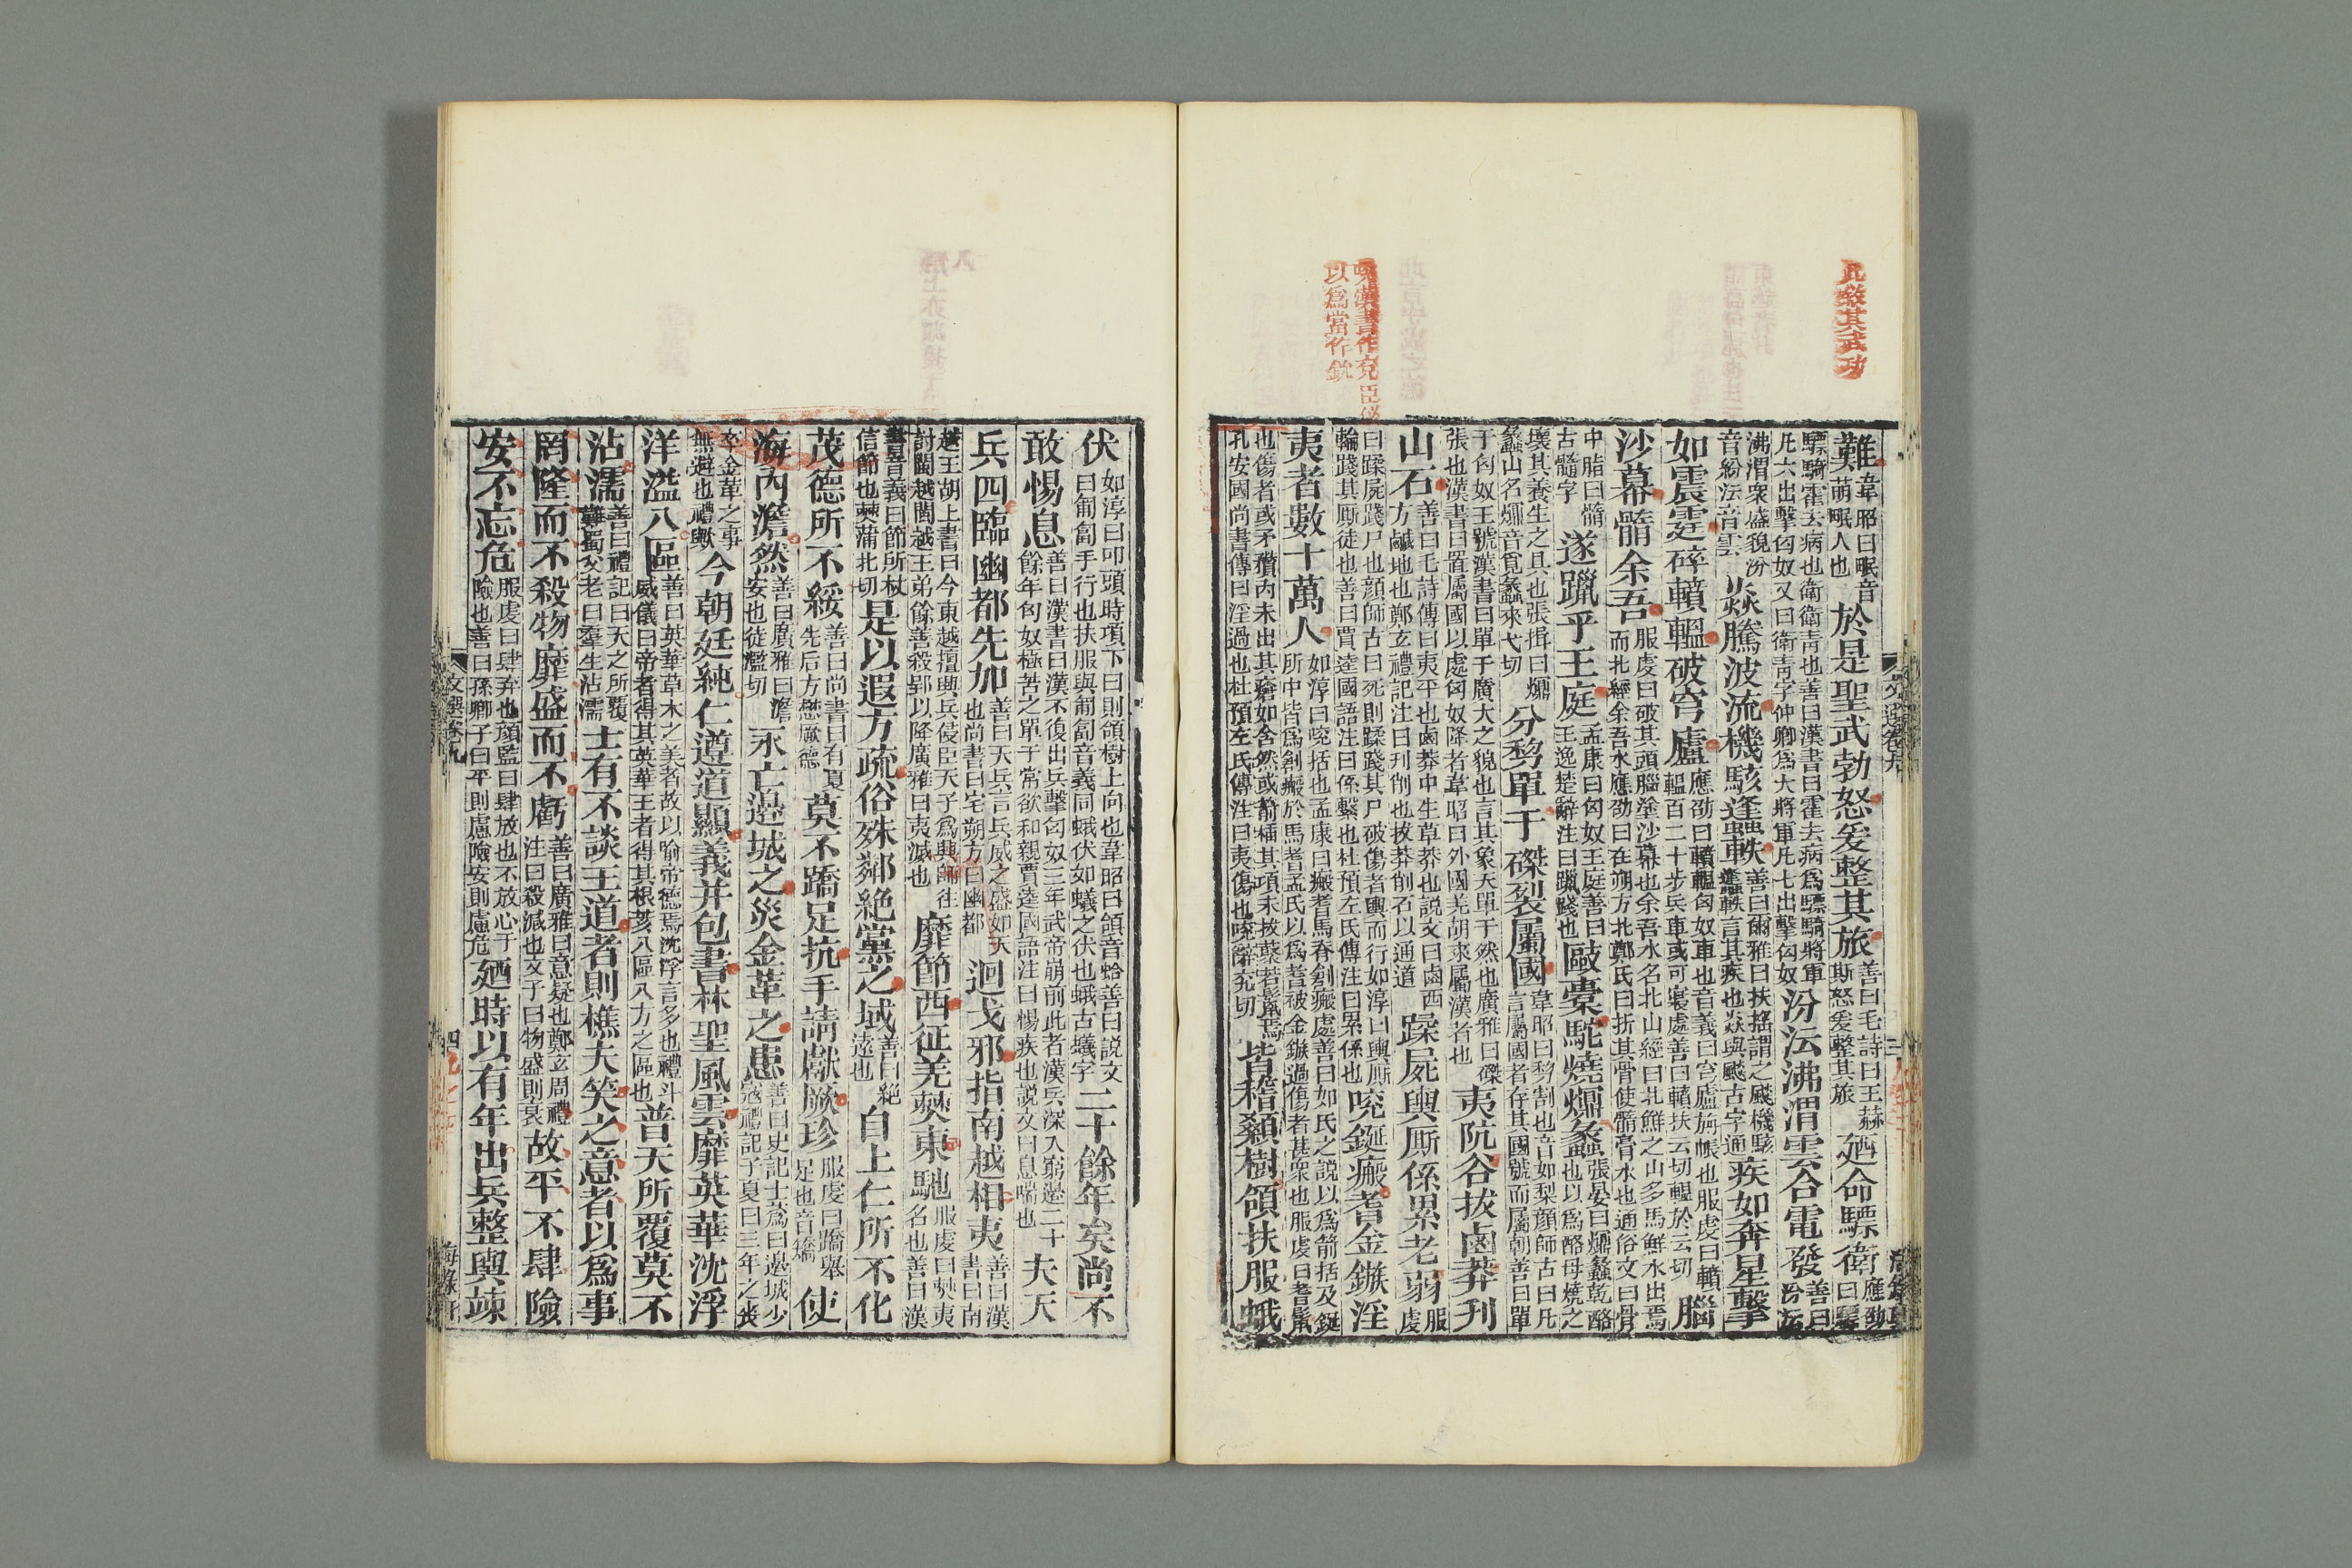 此敘其武功
㕙漢書作兗臣佖
以爲當作銳
文選卷九
三
難韋昭曰眠音萌眠人也於是聖武勃怒爰整其旅善曰毛詩曰王赫斯怒爰整其旅廼命驃衛應劭曰驃
驃騎霍去病也衛衛青也善曰漢書曰霍去病爲驃騎將軍凡六出擊匈奴又曰衛青字仲卿爲大將軍凡七出擊匈奴汾沄沸渭雲合電發善曰汾沄
沸渭衆盛貌汾音紛沄音雲猋騰波流機駭蠭軼善曰爾雅曰扶搖謂之飈機駭蠭軼言其疾也猋與飈古字通疾如奔星擊
如震霆碎轒轀破穹廬應劭曰轒轀匈奴車也音義曰穹廬旃帳也服虔曰轒轀百二十步兵車或可寢處善曰轒扶云切轀於云切腦
沙幕髓余吾服虔曰破其頭腦塗沙幕也余吾水名北山經曰北鮮之山多馬鮮水出焉而北經余吾水應劭曰在朔方北鄭氏曰折其骨使髓膏水也通俗文曰骨
中脂曰髓古髓字遂躐乎王庭孟康曰匈奴王庭善曰王逸楚辭注曰躐踐也敺橐駝燒爤蠡張晏曰爤蠡乾酪也以爲酪母燒之
壞其養生之具也張揖曰爤蠡山名爤音覓蠡來弋切分剓單于磔裂屬國韋昭曰剓割也音如梨顏師古曰凡言屬國者存其國號而屬朝善曰單
于匈奴王號漢書曰單于廣大之貌也言其象天單于然也廣雅曰磔張也漢書曰置屬國以處匈奴降者韋昭曰外國羌胡來屬漢者也夷阬谷拔鹵莽刊
山石善曰毛詩傳曰夷平也鹵莽中生草莽也說文曰鹵西方鹹地也鄭玄禮記注曰刊削也拔莽削石以通道蹂屍輿廝係累老弱服虔
曰蹂屍踐尸也顏師古曰死則蹂踐其尸破傷者輿而行如淳曰輿廝輪踐其廝徒也善曰賈逵國語注曰係繫也杜預左氏傳注曰累係也㕙鋋瘢耆金鏃淫
夷者數十萬人如淳曰㕙括也孟康曰瘢耆馬脊創瘢處善曰如氏之說以爲箭括及鋋所中皆爲創瘢於馬耆孟氏以爲耆被金鏃過傷者甚衆也服虔曰耆鬣
也傷者或矛矟內未出其瘡如含然或箭插其項未拔葉若鬣焉孔安國尚書傳曰淫過也杜預左氏傳注曰夷傷也㕙辭兗切皆稽顙樹頷扶服蛾
伏如淳曰叩頭時項下曰則頷樹上向也韋昭曰頷音蛤善曰說文曰匍匐手行也扶服與匍匐音義同蛾伏如蟻之伏也蛾古蟻字二十餘年矣尚不
敢惕息善曰漢書曰漢不復出兵擊匈奴三年武帝崩前此者漢兵深入窮邊二十餘年匈奴極苦之單于常欲和親賈逵國語注曰惕疾也說文曰息喘也夫天
兵四臨幽都先加善曰天兵言兵威之盛如天也尚書曰宅朔方曰幽都迴戈邪指南越相夷善曰漢書曰南
越王胡上書曰今東越擅興兵侵臣天子爲興師往討閩越閩越王弟餘善殺郢以降廣雅曰夷滅也靡節西征羌僰東馳服虔曰僰夷名也善曰漢
書音義曰節所杖信節也僰蒲北切是以遐方疏俗殊鄰絶黨之域善曰絶遠也自上仁所不化
茂德所不綏善曰尚書曰有夏先后方懋厥德莫不蹻足抗手請獻厥珍服虔曰蹻舉足也音矯使
海內澹然善曰廣雅曰澹安也徒濫切永亡邊城之災金革之患善曰史記士蔿曰邊城少寇禮記子夏曰三年之喪
卒金革之事無避也禮歟今朝廷純仁遵道顯義并包書林聖風雲靡英華沈浮
洋溢八區善曰英華草木之美者故以喻帝德焉沈浮言多也禮斗威儀曰帝者得其英華王者得其根荄八區八方之區也普天所覆莫不
沾濡善曰禮記曰天之所覆難蜀父老曰羣生沾濡士有不談王道者則樵夫笑之意者以爲事
罔隆而不殺物靡盛而不虧善曰廣雅曰意疑也鄭玄周禮注曰殺減也文子曰物盛則衰故平不肆險
安不忘危服虔曰肆弃也顏監曰肆放也不放心于險也善曰孫卿子曰平則慮險安則慮危廼時以有年出兵整輿竦
文選卷九
四
海錄軒